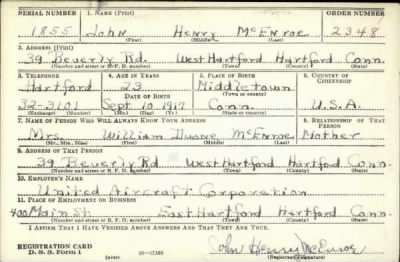 SERIAL NUMBER 1. NAME (Print) ORDER NUMBER
1855 John Henry McEnroe 2348
(First) (Middle) (Last)
2. ADDRESS (Print)
39 Beverly Rd. West Hartford Hartford Conn.
(Number and street or R. F. D. number) (Town) (County) (State)
3. TELEPHONE 4. AGE IN YEARS 5. PLACE OF BIRTH 6. COUNTRY OF CITIZENSHIP
Hartford 23 Middletown
DATE OF BIRTH (Town or county)
32-3101 Sept. 10, 1917 Conn. U.S.A.
(Exchange) (Number) (Mo.) (Day) (Yr.) (State or country)
7. NAME OF PERSON WHO WILL ALWAYS KNOW YOUR ADDRESS 8. RELATIONSHIP OF THAT PERSON
Mrs. William Duane McEnroe Mother
(Mr., Mrs., Miss) (First) (Middle) (Last)
9. ADDRESS OF THAT PERSON
39 Beverly Rd West Hartford Hartford Conn.
(Number and street or R. F. D. number) (Town) (County) (State)
10. EMPLOYER'S NAME
United Aircraft Corporation
11. PLACE OF EMPLOYMENT OR BUSINESS
400 Main St. East Hartford Hartford Conn.
(Number and street or R. F. D. number) (Town) (County) (State)
I AFFIRM THAT I HAVE VERIFIED ABOVE ANSWERS AND THAT THEY ARE TRUE.
REGISTRATION CARD
D. S. S. Form 1 (over) 16—17105 John Henry McEnroe
(Registrant's Signature)